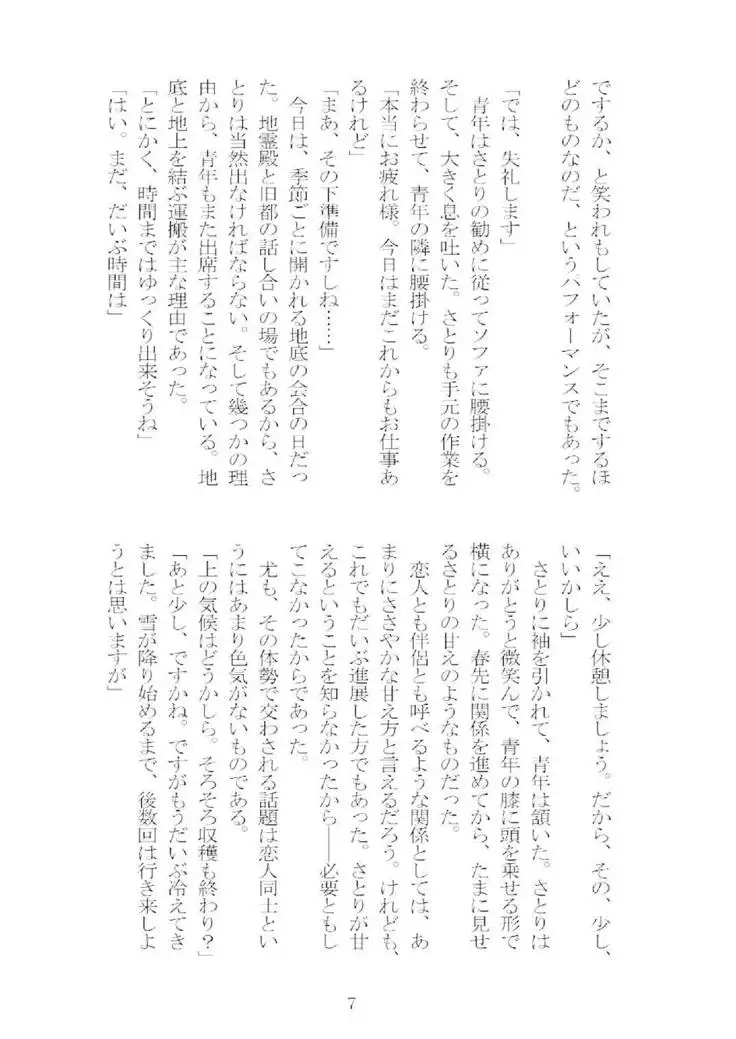 でするか、と笑われもしていたが、そこまでするほ
どのものなのだ、というパフォーマンスでもあった。
「では、失礼します」
青年はさとりの勧めに従ってソファに腰掛ける。
そして、大きく息を吐いた。さとりも手元の作業を
終わらせて、青年の隣に腰掛ける。
「本当にお疲れ様。今日はまだこれからもお仕事あ
るけれど」
「まあ、その下準備ですしね……」
今日は、季節ごとに開かれる地底の会合の日だっ
た。地霊殿と旧都の話し合いの場でもあるから、さ
とりは当然出なければならない。そして幾つかの理
由から、青年もまた出席することになっている。地
底と地上を結ぶ運搬が主な理由であった。
「とにかく、時間まではゆっくり出来そうね」
「はい。まだ、だいぶ時間は」
「ええ、少し休憩しましょう。だから、その、少し、
いいかしら」
さとりに袖を引かれて、青年は頷いた。さとりは
ありがとうと微笑んで、青年の膝に頭を乗せる形で
横になった。春先に関係を進めてから、たまに見せ
るさとりの甘えのようなものだった。
恋人とも伴侶とも呼べるような関係としては、あ
まりにささやかな甘え方と言えるだろう。けれども、
これでもだいぶ進展した方でもあった。さとりが甘
えるということを知らなかったから――必要ともし
てこなかったからであった。
尤も、その体勢で交わされる話題は恋人同士とい
うにはあまり色気がないものである。
「上の気候はどうかしら。そろそろ収穫も終わり？」
「あと少し、ですかね。ですがもうだいぶ冷えてき
ました。雪が降り始めるまで、後数回は行き来しよ
うとは思いますが」
7